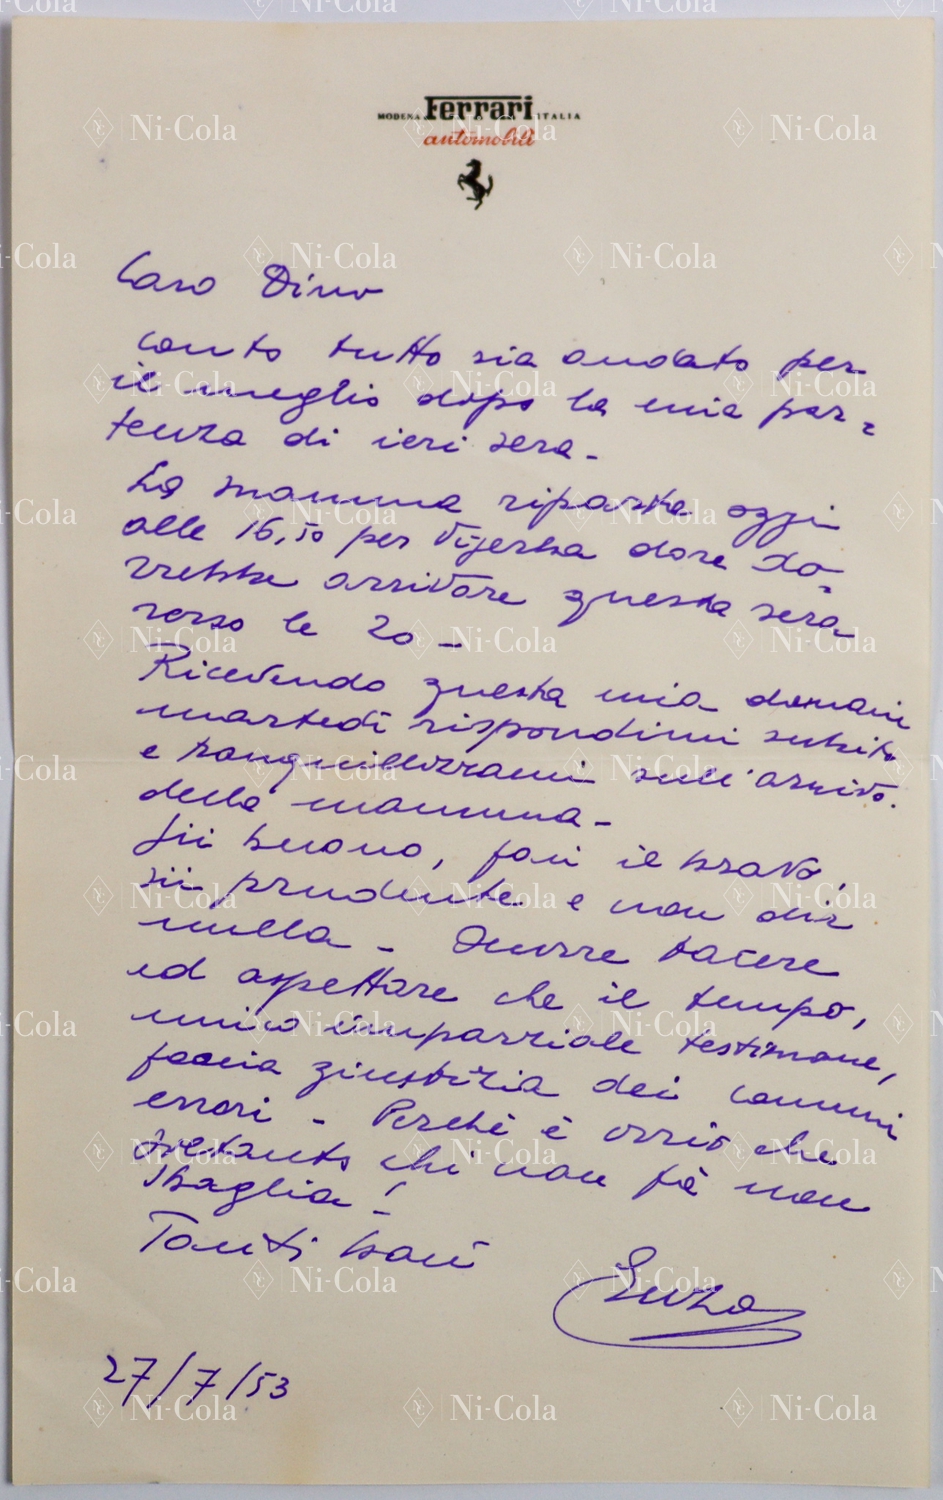 MODENA Ferrari ITALIA
automobili
Caro Dino
conto tutto sia andato per
il meglio dopo la mia par=
tenza di ieri sera -
La mamma riparta oggi
alle 16,50 per Viserba dove do=
vrebbe arrivare questa sera
verso le 20 -
Ricevendo questa mia domani
martedì rispondimi subito
e tranquillizzami sull'arrivo
della mamma -
Sii buono, fai il bravo,
sii prudente e non dir
nulla - Occorre tacere
ed aspettare che il tempo,
unico imparziale testimone,
faccia giustizia dei comuni
errori - Perché è ovvio che
soltanto chi non fà non
sbaglia! -
Tanti baci
Enzo
27/7/53
Ni-Cola